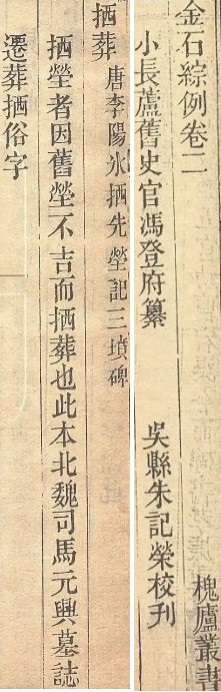 金石綜例卷二 槐廬叢書
小長蘆舊史官馮登府纂 吳縣朱記榮校刊
拪葬 唐李陽冰拪先塋記三墳碑
拪塋者因舊塋不吉而拪葬也此本北魏司馬元興墓誌
遷葬拪俗字